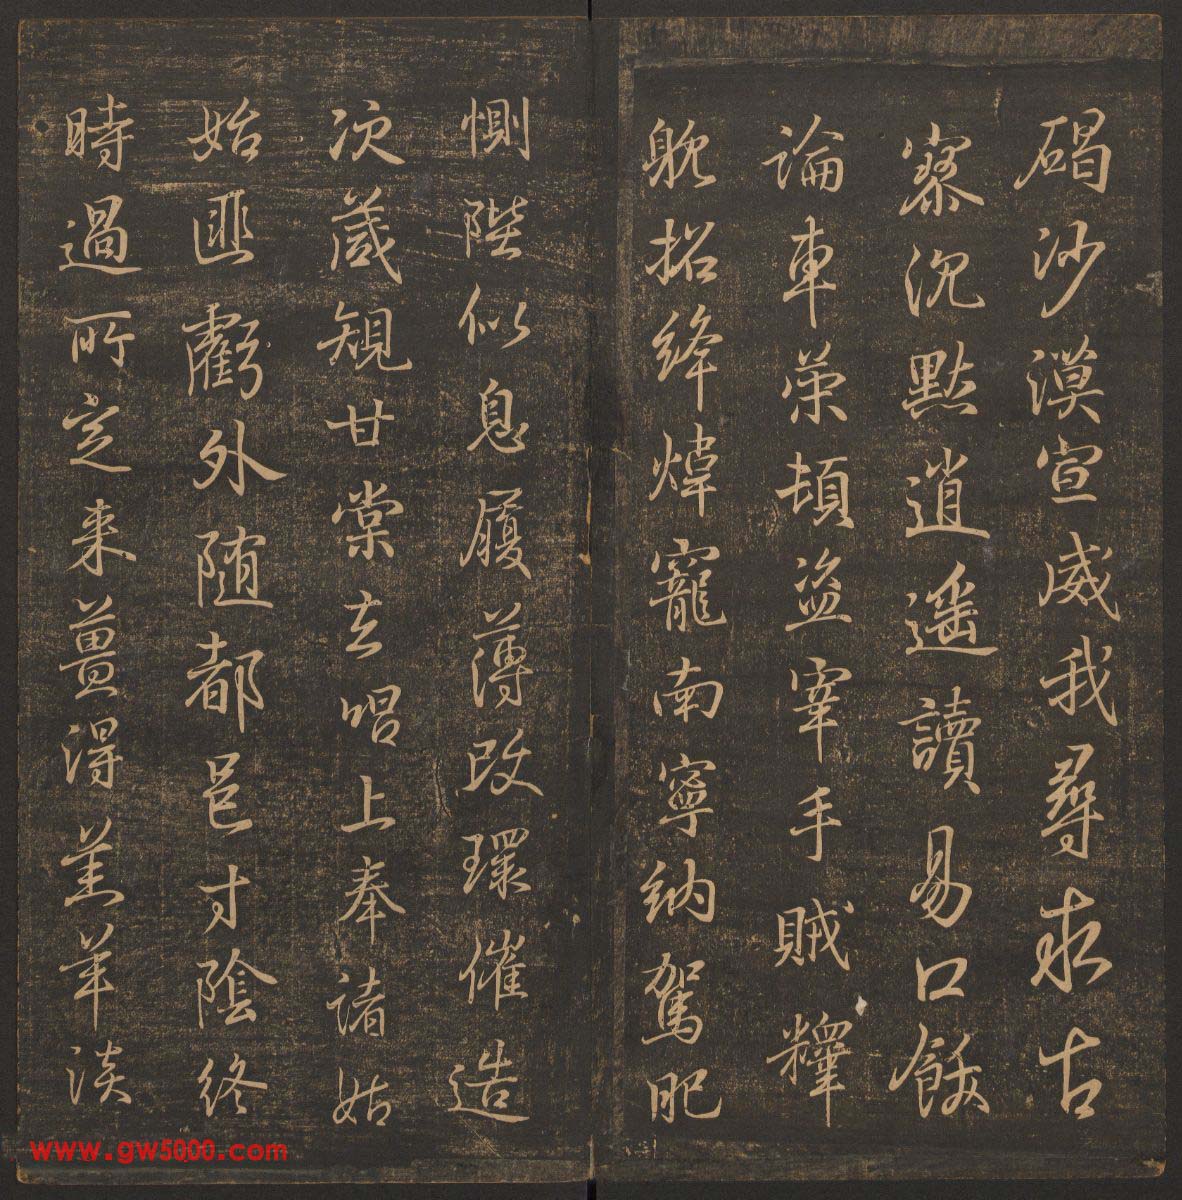 碣沙漠宣威我尋求古
寮沉默逍遥讀易口飯
論車策頓盗宰手賊糧
躭招絳煒寵南寧納駕肥
惻陛似息履薄改環催造
次箴規甘棠去唱上奉諸姑
始匪虧外随都邑寸陰終
時過所定来薑得羔羊淡
www.gw5000.com